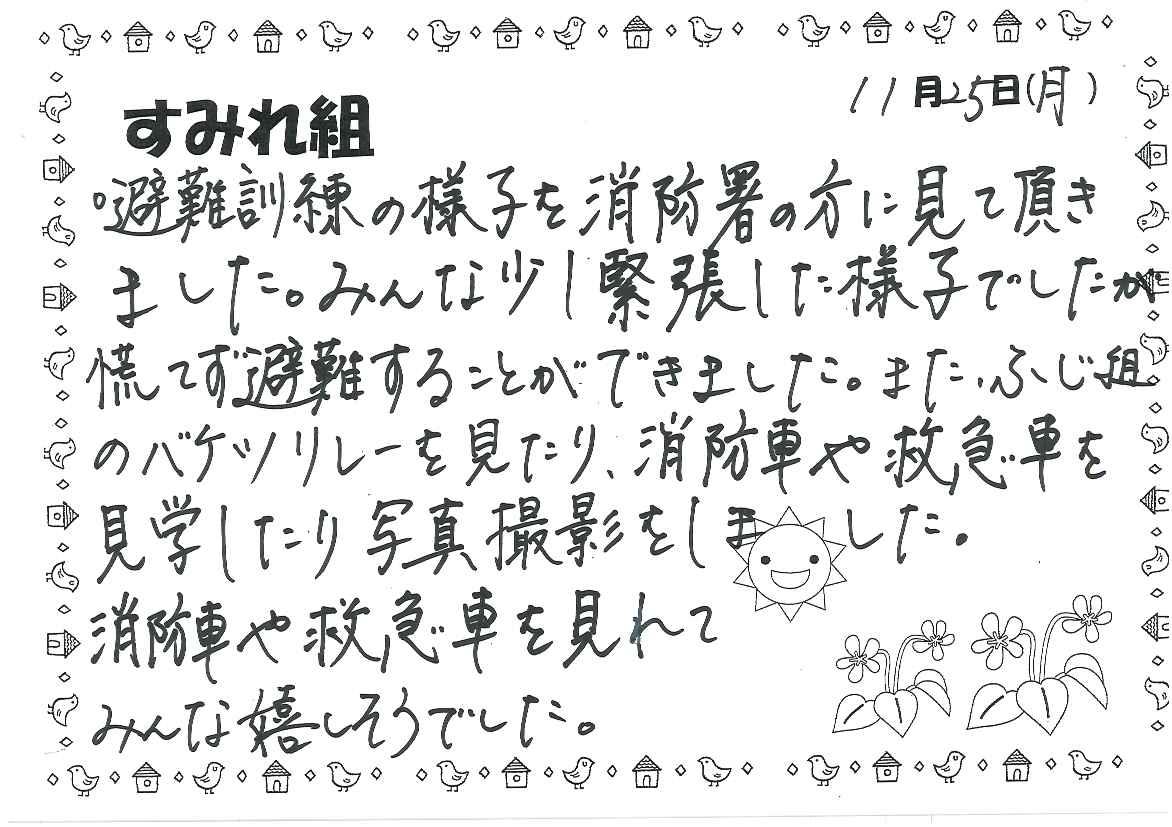 11月25日(月)
すみれ組
○避難訓練の様子を消防署の方に見て頂き
ました。みんな少し緊張した様子でしたが
慌てず避難することができました。また、ふじ組
のバケツリレーを見たり、消防車や救急車を
見学したり写真撮影をしました。
消防車や救急車を見れて
みんな嬉しそうでした。